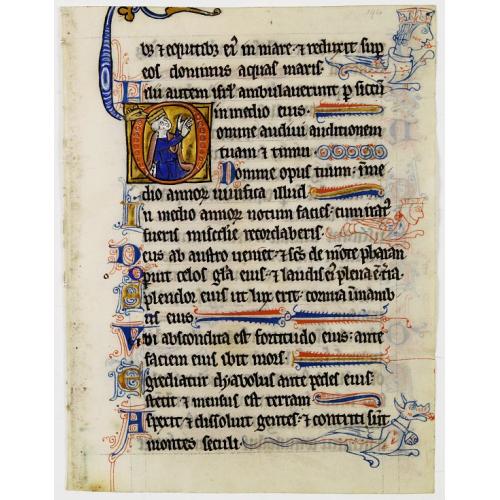 bus ⁊ equitibus ei' in mare ⁊ reduxit sup
eos dominus aquas maris.
Filii autem isrl' ambulauerunt p siccū
in medio eius.
Domine audiui auditionem
tuam ⁊ timui.
Domine opus tuum: ī me
dio annorꝝ uiuifica illud.
In medio annorꝝ notum facies: cum iratꝰ
fueris misericordie recordaberis.
Deus ab austro ueniet: ⁊ scs de mōte pharan
Opuit celos glīa eius: ⁊ laudis ei' plena ē tīra.
Splendor eius ut lux erit: cornua ī manib
us eius.
Vbi abscondita est fortitudo eius: ante
faciem eius ibit mors.
Egredietur dyabolus ante pedes eius:
stetit ⁊ mensus est terram.
Aspexit ⁊ dissoluit gentes: ⁊ contriti sūt
montes seculi.